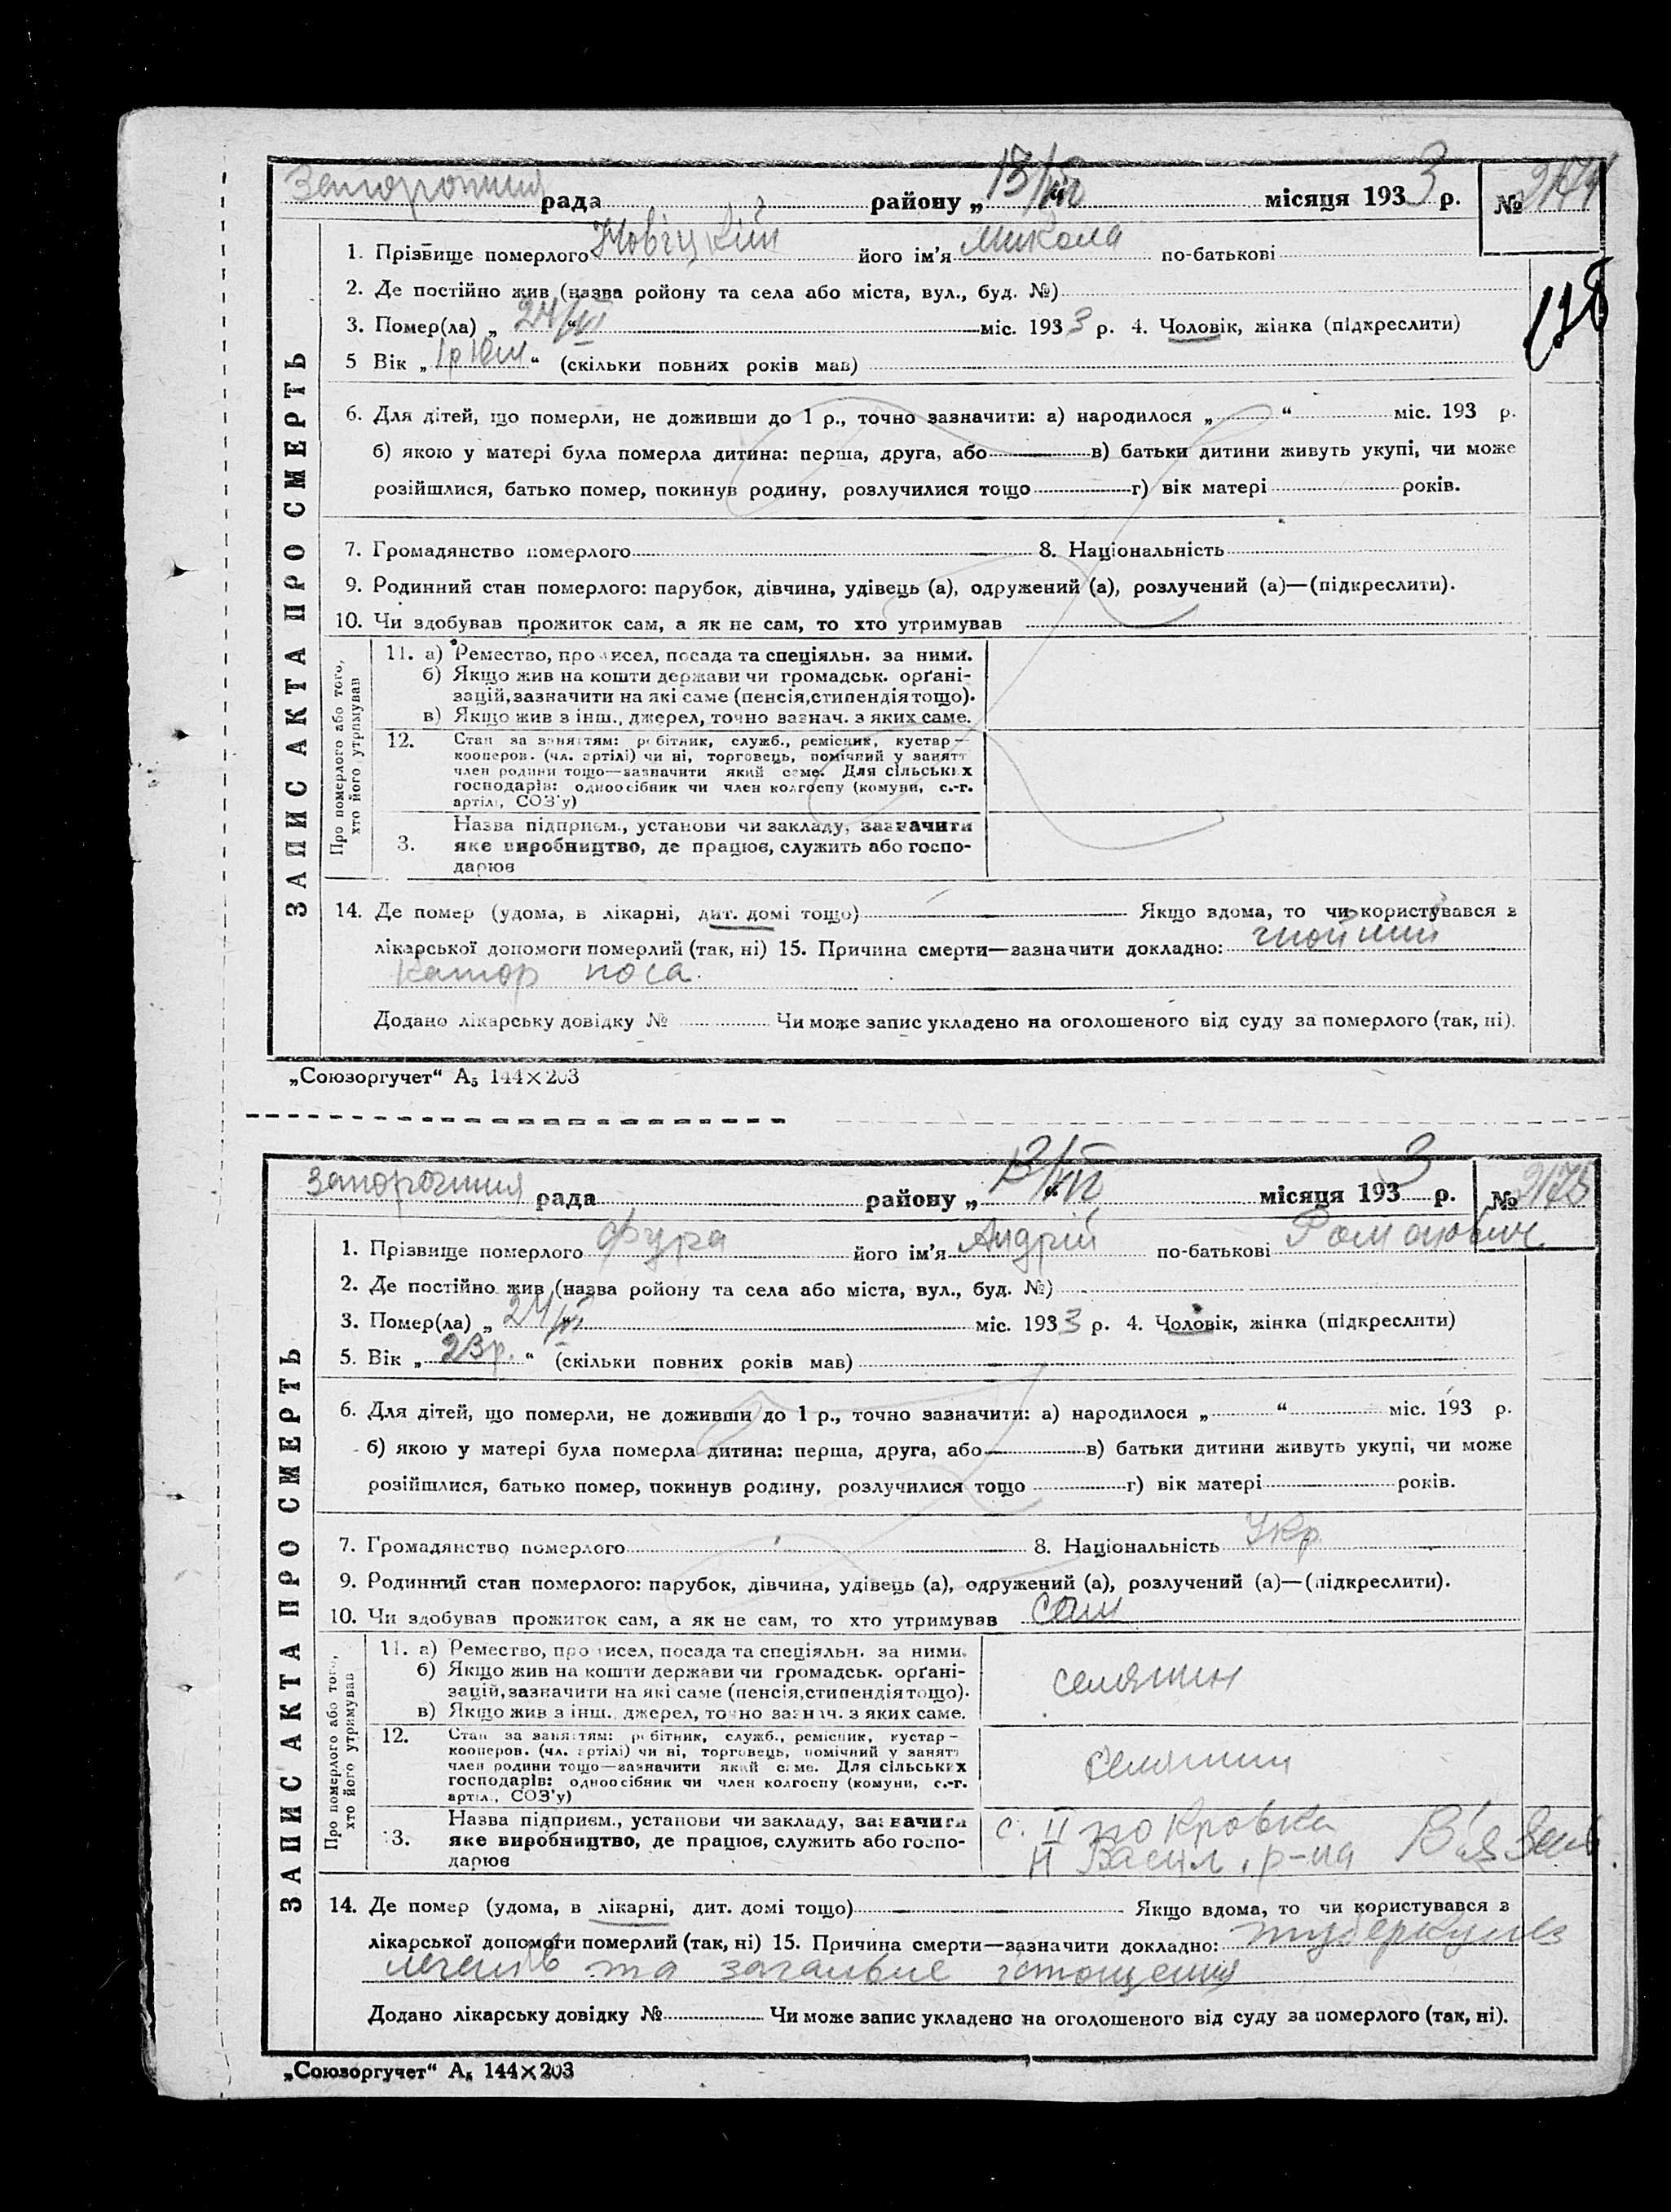 Запоріжжя рада району „13/VII“ місяця 1933 р. № 2174
1. Прізвище померлого Новіцкий його ім'я Микола по-батькові
178
2. Де постійно жив (назва ройону та села або міста, вул., буд. №)
3. Помер(ла) „24/VI“ міс. 1933 р. 4. Чоловік, жінка (підкреслити)
5 Вік „1р 10м“ (скільки повних років мав)
6. Для дітей, що померли, не доживши до 1 р., точно зазначити: а) народилося „ “ міс. 193 р.
б) якою у матері була померла дитина: перша, друга, або в) батьки дитини живуть укупі, чи може
розійшлися, батько помер, покинув родину, розлучилися тощо г) вік матері років.
7. Громадянство померлого 8. Національність
9. Родинний стан померлого: парубок, дівчина, удівець (а), одружений (а), розлучений (а)—(підкреслити).
10. Чи здобував прожиток сам, а як не сам, то хто утримував
ЗАПИС АКТА ПРО СМЕРТЬ
Про померлого або того,
хто його утримував
11. а) Ремество, промисел, посада та спеціяльн. за ними.
б) Якщо жив на кошти держави чи громадськ. орґані-
зацій, зазначити на які саме (пенсія, стипендія тощо).
в) Якщо жив з інш., джерел, точно зазнач. з яких саме.
12. Стан за заняттям: робітник, служб., ремісник, кустар—
кооперов. (чл. артілі) чи ні, торговець, помічний у занятт
член родини тощо—зазначити який саме. Для сільських
господарів: одноосібник чи член колгоспу (комуни, с.-г.
артілі, СОЗ'у)
3. Назва підприєм., установи чи закладу, зазначити
яке виробництво, де працює, служить або госпо-
дарює
14. Де помер (удома, в лікарні, дит. домі тощо) Якщо вдома, то чи користувався з
лікарської допомоги померлий (так, ні) 15. Причина смерти—зазначити докладно: гнойний
катар носа.
Додано лікарську довідку № Чи може запис укладено на оголошеного від суду за померлого (так, ні).
„Союзоргучет“ А5 144×203
Запоріжжя рада району „13/VII“ місяця 1933 р. № 2175
1. Прізвище померлого Фура його ім'я Андрій по-батькові Романович
2. Де постійно жив (назва ройону та села або міста, вул., буд. №)
3. Помер(ла) „24/VI“ міс. 1933 р. 4. Чоловік, жінка (підкреслити)
5. Вік „23р.“ (скільки повних років мав)
6. Для дітей, що померли, не доживши до 1 р., точно зазначити: а) народилося „ “ міс. 193 р.
б) якою у матері була померла дитина: перша, друга, або в) батьки дитини живуть укупі, чи може
розійшлися, батько помер, покинув родину, розлучилися тощо г) вік матері років.
7. Громадянство померлого 8. Національність Укр.
9. Родинний стан померлого: парубок, дівчина, удівець (а), одружений (а), розлучений (а)—(підкреслити).
10. Чи здобував прожиток сам, а як не сам, то хто утримував сам
ЗАПИС АКТА ПРО СМЕРТЬ
Про померлого або того,
хто його утримував
11. а) Ремество, промисел, посада та спеціяльн. за ними.
б) Якщо жив на кошти держави чи громадськ. орґані-
зацій, зазначити на які саме (пенсія, стипендія тощо).
в) Якщо жив з інш., джерел, точно зазнач. з яких саме.
селянин
12. Стан за заняттям: робітник, служб., ремісник, кустар—
кооперов. (чл. артілі) чи ні, торговець, помічний у занятт
член родини тощо—зазначити який саме. Для сільських
господарів: одноосібник чи член колгоспу (комуни, с.-г.
артіл., СОЗ'у)
селянин
3. Назва підприєм., установи чи закладу, зазначити
яке виробництво, де працює, служить або госпо-
дарює
с. II покровка
Н Васил. р-на В'язень
14. Де помер (удома, в лікарні, дит. домі тощо) Якщо вдома, то чи користувався з
лікарської допомоги померлий (так, ні) 15. Причина смерти—зазначити докладно: туберкульоз
легенів та загальне істощення
Додано лікарську довідку № Чи може запис укладено на оголошеного від суду за померлого (так, ні).
„Союзоргучет“ А5 144×203